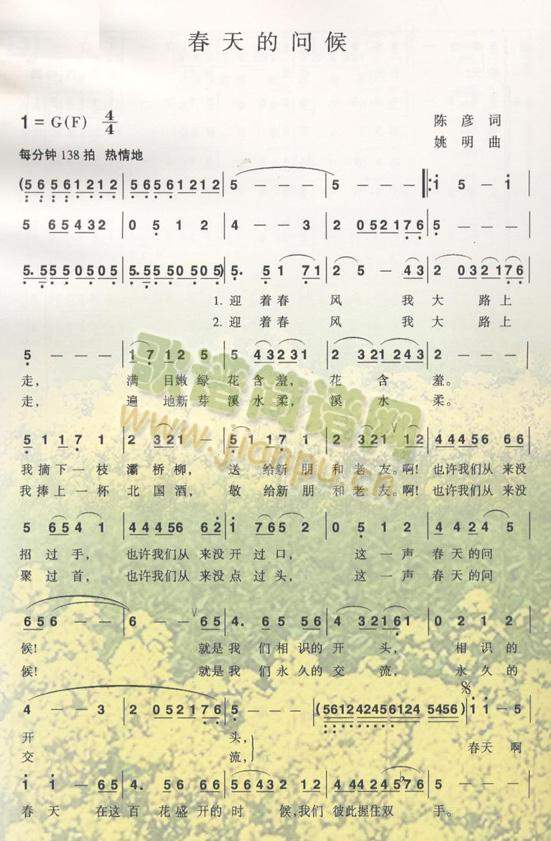 春天的问候
1 = G(F) 4/4
陈彦 词
姚明 曲
每分钟 138 拍 热情地
(5 6 5 6 1 2 1 2 | 5 6 5 6 1 2 1 2 | 5 - - - | 5 - - - ‖: 1 5 - 1 |
5 6 5 4 3 2 | 0 5 1 2 | 4 - - 3 | 2 0 5 2 1 7 6 | 5 - - - |
5. 5 5 5 0 5 0 5 | 5. 5 5 5 0 5 0 5) | 5. 5 1 7 1 | 2 5 - 4 3 | 2 0 3 2 1 7 6 |
1. 迎 着 春 风 我 大 路 上
2. 迎 着 春 风 我 大 路 上
5 - - - | 1 7 1 2 5 | 5 4 3 2 3 1 | 2 3 2 1 2 4 3 | 2 - - - |
走, 满 目嫩 绿 花 含 羞, 花 含 羞。
走, 遍 地新 芽 溪 水 柔, 溪 水 柔。
5 1 1 7 1 | 2 3 2 1 - | 5 1 1 7 1 | 2 3 2 1 1 2 | 4 4 4 5 6 6 6 |
我 摘 下 一 枝 灞 桥 柳, 送 给 新 朋 和 老 友。啊! 也许我们从 来没
我 捧 上 一 杯 北 国 酒, 敬 给 新 朋 和 老 友。啊! 也许我们从 来没
5 6 5 4 1 | 4 4 4 5 6 6 2 | 1 7 6 5 2 | 0 5 1 2 | 4 4 2 4 5 |
招 过 手, 也许我们从 来没 开 过 口, 这 一 声 春 天 的 问
聚 过 首, 也许我们从 来没 点 过 头, 这 一 声 春 天 的 问
6 5 6 - - | 6 - - 6 5 | 4. 6 5 5 6 | 4. 2 1 - | 0 2 1 2 |
候! 就是 我 们 相 识的 开 头, 相 识 的
候! 就是 我 们 永 久的 交 流, 永 久 的
4 - - 3 | 2 0 5 2 1 7 6 | 5 - - - | (5 6 1 2 4 2 4 5 6 1 2 4 5 4 5 6) | 1 1 - 5 |
开 头,
交 流,
春天 啊
1 1 - 5 | 4. 5 6 6 6 | 5. 6 5 4 3 2 1 2 | 4 4 4 2 4 5 6 | 5 - - - |
春 天 在 这 百 花 盛 开 的 时 候,我 们 彼此 握住 双 手。
歌谱简谱网
www.jianpu.cn